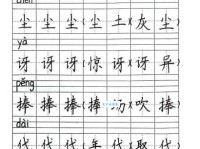 chén
尘 尘 尘 尘 土 ( 灰 尘
yà
讶 讶 讶 ( 惊 讶 ( 讶 异
pěng
捧 捧 捧 ( 捧 ( 吹 捧
dài
代 代 代 ( 年 代 ( 代